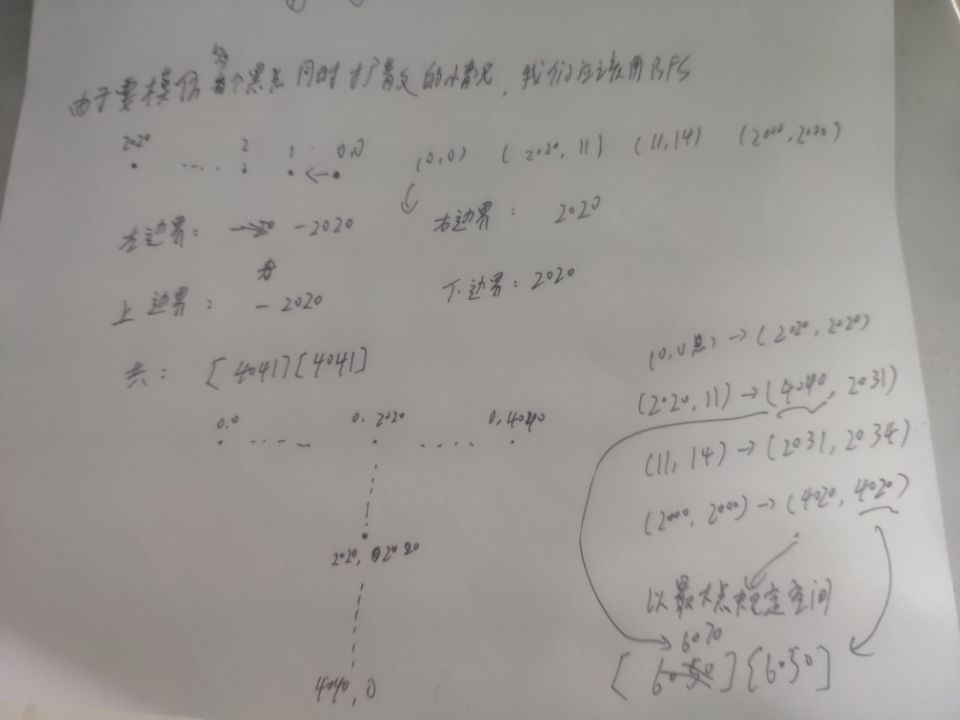 由于要模仿每个黑点同时扩散的情况，我们应该用BFS
2020 2 1 0.0 (0,0) (2020,11) (11,14) (2000,2000)
左边界： -2020 右边界： 2020
上边界： -2020 下边界：2020
共： [4041][4041]
0.0 0.2020 0.4040
2020, 2020
4040,0
(0,0) → (2020, 2020)
(2020,11) → (4040, 2031)
(11,14) → (2031, 2034)
(2000, 2000) → (4020, 4020)
以最大点规定空间
6070
[6050][6050]